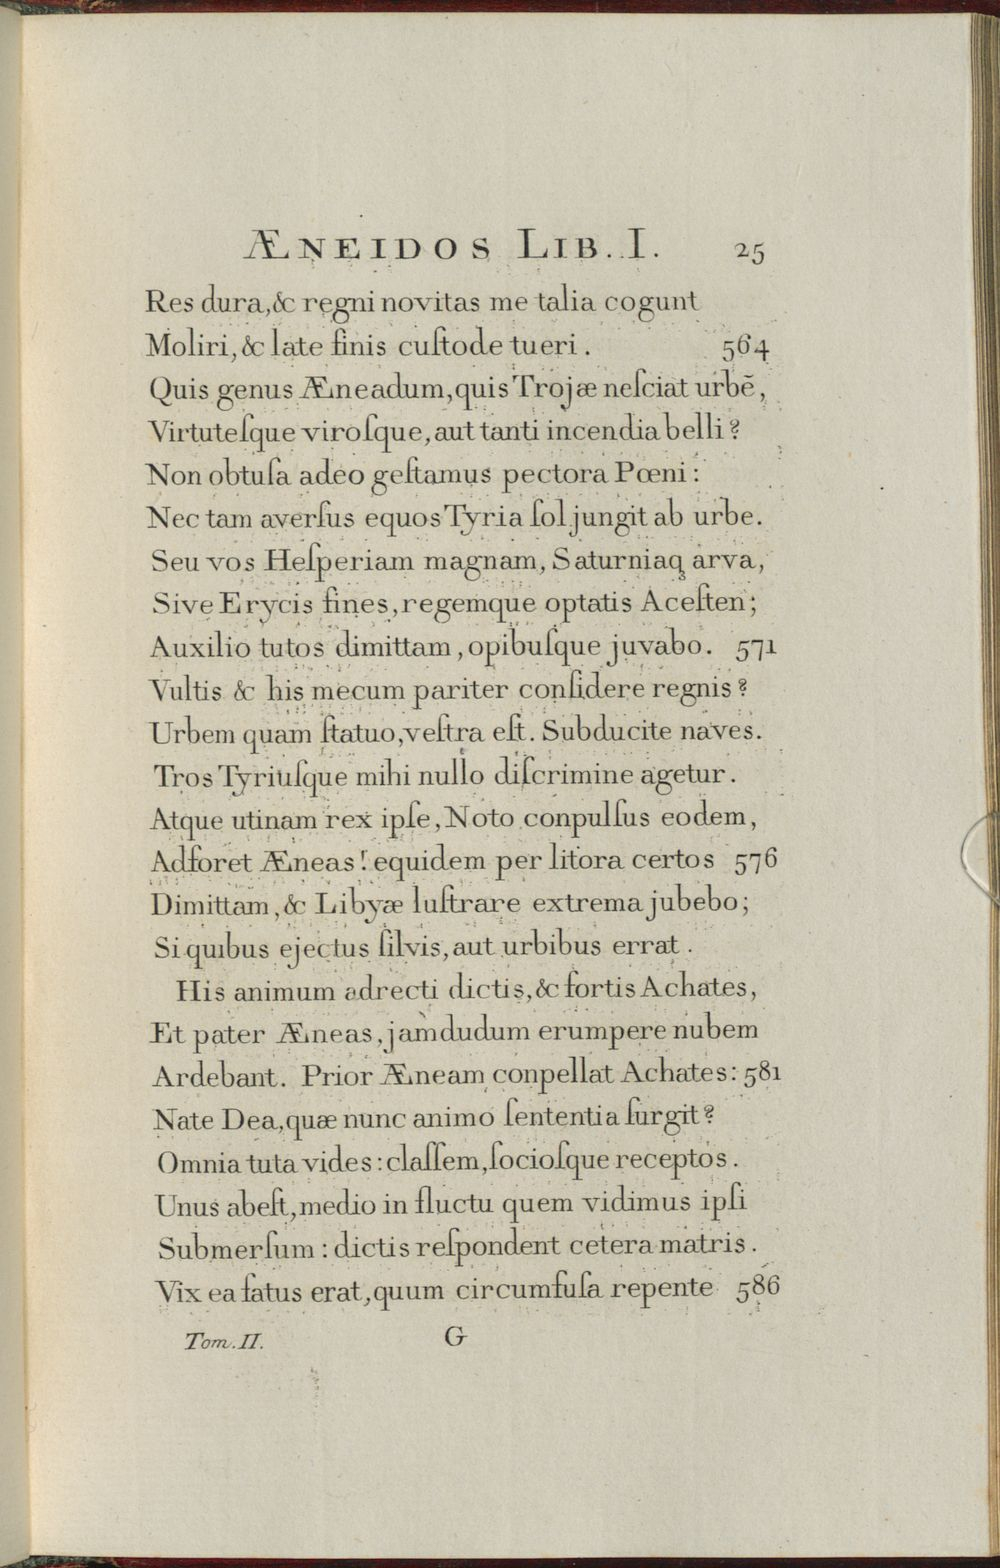 ÆNEIDOS LIB. I. 25
Res dura, & regni novitas me talia cogunt
Moliri, & late finis cuſtode tueri. 564
Quis genus Æneadum, quis Trojæ neſciat urbē,
Virtuteſque viroſque, aut tanti incendia belli?
Non obtuſa adeo geſtamus pectora Pœni:
Nec tam averſus equos Tyria ſol jungit ab urbe.
Seu vos Heſperiam magnam, Saturniaq̧ arva,
Sive Erycis fines, regemque optatis Aceſten;
Auxilio tutos dimittam, opibuſque juvabo. 571
Vultis & his mecum pariter conſidere regnis?
Urbem quam ſtatuo, veſtra eſt. Subducite naves.
Tros Tyriuſque mihi nullo diſcrimine agetur.
Atque utinam rex ipſe, Noto conpulſus eodem,
Adforet Æneas! equidem per litora certos 576
Dimittam, & Libyæ luſtrare extrema jubebo;
Si quibus ejectus ſilvis, aut urbibus errat.
His animum adrecti dictis, & fortis Achates,
Et pater Æneas, jamdudum erumpere nubem
Ardebant. Prior Æneam conpellat Achates: 581
Nate Dea, quæ nunc animo ſententia ſurgit?
Omnia tuta vides: claſſem, ſocioſque receptos.
Unus abeſt, medio in fluctu quem vidimus ipſi
Submerſum: dictis reſpondent cetera matris.
Vix ea fatus erat, quum circumfuſa repente 586
Tom. II. G